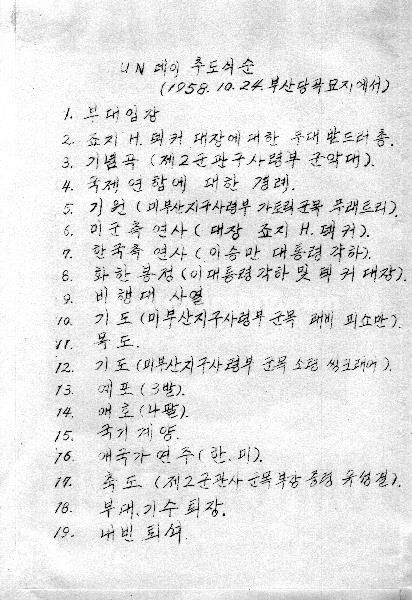 UN 데이 추도식순
(1958. 10. 24. 부산당곡묘지에서)
1. 부대입장
2. 죠지 H. 떽커 대장에 대한 부대 받드러 총.
3. 기념곡 (제2군관구사령부 군악대).
4. 국제연합에 대한 경례.
5. 기원 (미부산지구사령부 가토릭군목 무래트리).
6. 미군측 연사 (대장 죠지 H. 떽커).
7. 한국측 연사 (이승만 대통령 각하).
8. 화한 봉정 (이대통령각하 및 떽커 대장).
9. 비행대 사열
10. 기도 (미부산지구사령부 군목 래비 피소만).
11. 묵도.
12. 기도 (미부산지구사령부 군목 소령).
13. 예포 (3발).
14. 애호 (나팔).
15. 국기 게양.
16. 애국가 연주 (한. 미).
17. 축도 (제2군관사 군목부장 중령).
18. 부대, 기수 퇴장.
19. 내빈 퇴석.